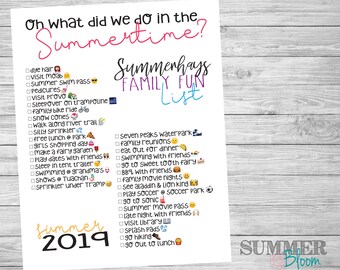 Oh What did We do in the
Summertime?
Summerhays
FAMILY FUN
List
dye hair
Visit Moab
Summer Swim pass
pedicures
Visit provo
Sleepover on trampoline
family bike ride
Snow cones
Walk along river trail
Silly Sprinkler
free lunch @ park
girls shopping day
Make a fairy garden
play dates with friends
Sleep in tent trailer
Swimming @ grandma's
Shows @ Tuachan
Sprinkler under Tramp
Seven peaks Waterpark
family reunions
eat out for dinner
Swimming with friends
go to Sweet tooth fairy
BBQ with friends
family movie nights
See Aladdin & Lion King
play Soccer @ Soccer park
go to Sonic
Summer movie pass
late night with friends
Visit library
Splash pads
go hiking
go out to lunch
Summer
2019
SUMMER
Bloom